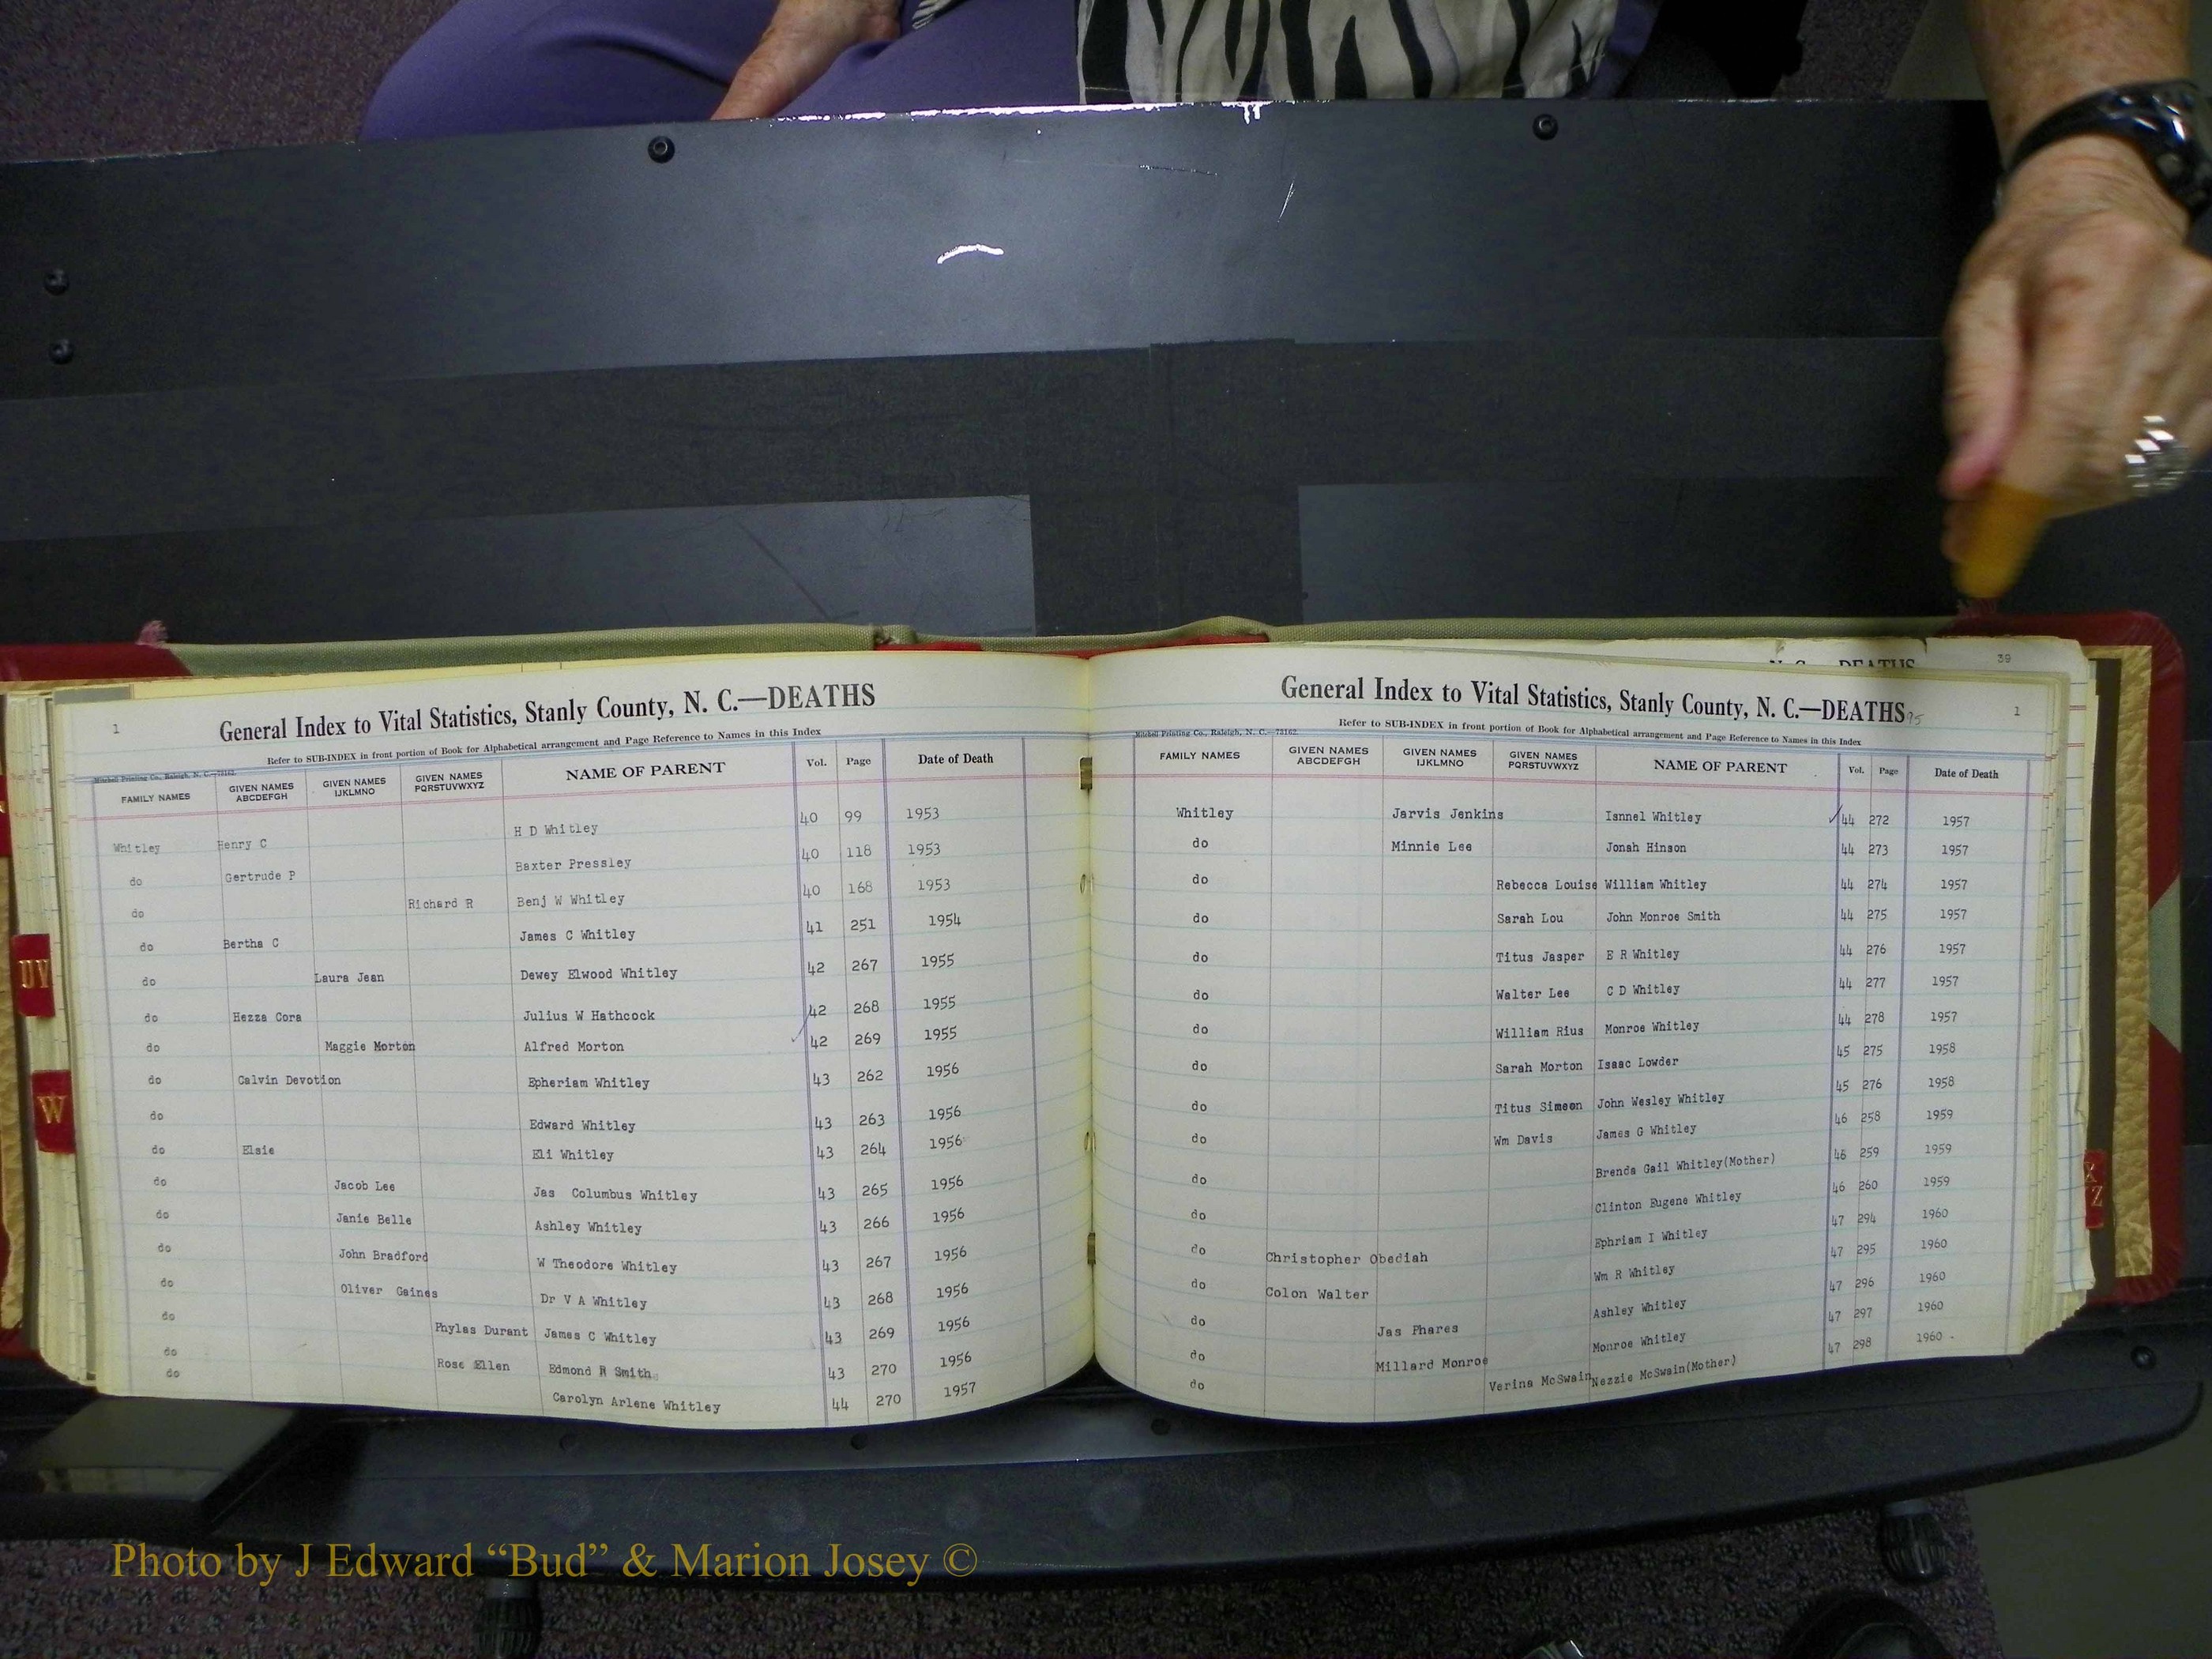 1
General Index to Vital Statistics, Stanly County, N. C.—DEATHS
Refer to SUB-INDEX in front portion of Book for Alphabetical arrangement and Page Reference to Names in this Index
Mitchell Printing Co., Raleigh, N. C.—73162.
FAMILY NAMES GIVEN NAMES ABCDEFGH GIVEN NAMES IJKLMNO GIVEN NAMES PQRSTUVWXYZ NAME OF PARENT Vol. Page Date of Death
Whitley Henry C H D Whitley 40 99 1953
do Gertrude P Baxter Pressley 40 118 1953
do Richard R Benj W Whitley 40 168 1953
do Bertha C James C Whitley 41 251 1954
do Laura Jean Dewey Elwood Whitley 42 267 1955
do Hezza Cora Julius W Hathcock 42 268 1955
do Maggie Morton Alfred Morton 42 269 1955
do Calvin Devotion Epheriam Whitley 43 262 1956
do Edward Whitley 43 263 1956
do Elsie Eli Whitley 43 264 1956
do Jacob Lee Jas Columbus Whitley 43 265 1956
do Janie Belle Ashley Whitley 43 266 1956
do John Bradford W Theodore Whitley 43 267 1956
do Oliver Gaines Dr V A Whitley 43 268 1956
do Phylas Durant James C Whitley 43 269 1956
do Rose Ellen Edmond R Smith 43 270 1956
do Carolyn Arlene Whitley 44 270 1957
UV
W
N. C.—DEATHS
39
General Index to Vital Statistics, Stanly County, N. C.—DEATHS
95
1
Refer to SUB-INDEX in front portion of Book for Alphabetical arrangement and Page Reference to Names in this Index
Mitchell Printing Co., Raleigh, N. C.—73162.
FAMILY NAMES GIVEN NAMES ABCDEFGH GIVEN NAMES IJKLMNO GIVEN NAMES PQRSTUVWXYZ NAME OF PARENT Vol. Page Date of Death
Whitley Jarvis Jenkins Isnnel Whitley 44 272 1957
do Minnie Lee Jonah Hinson 44 273 1957
do Rebecca Louise William Whitley 44 274 1957
do Sarah Lou John Monroe Smith 44 275 1957
do Titus Jasper E R Whitley 44 276 1957
do Walter Lee C D Whitley 44 277 1957
do William Rius Monroe Whitley 44 278 1957
do Sarah Morton Isaac Lowder 45 275 1958
do Titus Simeon John Wesley Whitley 45 276 1958
do Wm Davis James G Whitley 46 258 1959
do Brenda Gail Whitley(Mother) 46 259 1959
do Clinton Eugene Whitley 46 260 1959
do Christopher Obediah Ephriam I Whitley 47 294 1960
do Colon Walter Wm R Whitley 47 295 1960
do Jas Phares Ashley Whitley 47 296 1960
do Millard Monroe Monroe Whitley 47 297 1960
do Verina McSwain Nezzie McSwain(Mother) 47 298 1960
X
Z
Photo by J Edward “Bud” & Marion Josey ©